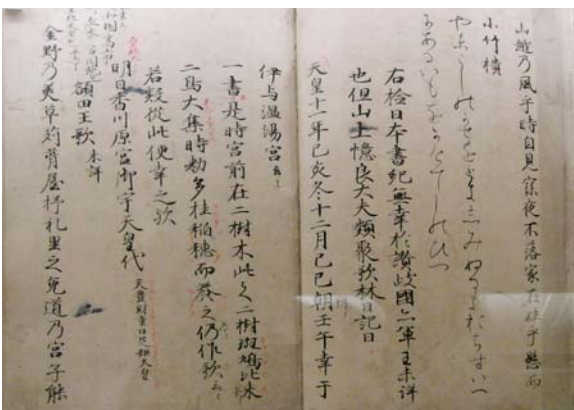 山越乃風乎時自見寐夜不落家在妹乎懸而
小竹樻
やまこしのかせをときしみぬるよおちすいへ
なるいもをかけてしのひつ
右檢日本書紀無幸於讃岐國亦軍王未詳
也但山上憶良大夫類聚歌林曰記曰
天皇十一年己亥冬十二月己巳朔壬午幸于
伊与温湯宮云々
一書是時宮前在二樹木此之二樹斑鳩比米
二鳥大集時勅多挂稲穂而養之仍作歌云々
若疑從此便幸之歟
明日香川原宮御宇天皇代 天豊財重日足姫天皇
額田王歌 未詳
金野乃美草苅葺屋杼礼里之兎道乃宮子能